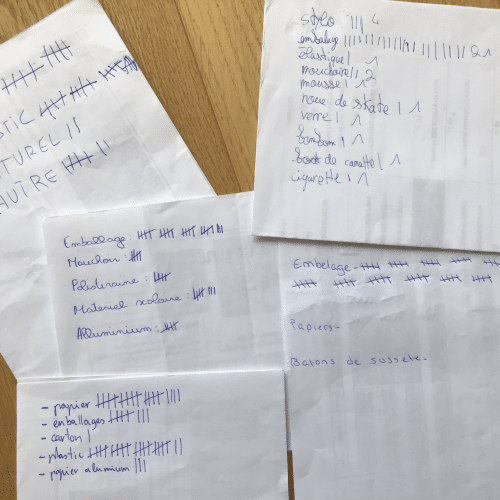 STIC
TUREL ||
AUTRE |||| ||
stylo ||| 4
embalage 21
élastique | 1
mouchoire || 2
mousse | 1
roue de skate | 1
verre | 1
bonbon 1 1
bout de canette | 1
cigarette 1 1
Emballage :
Mouchoir :
Polisteraine :
Materiel scolaire :
Alluminium :
Embelage -
Papiers -
Batons de sussete -
- papier
- emballages
- carton |
- plastic
- papier aluminium |||